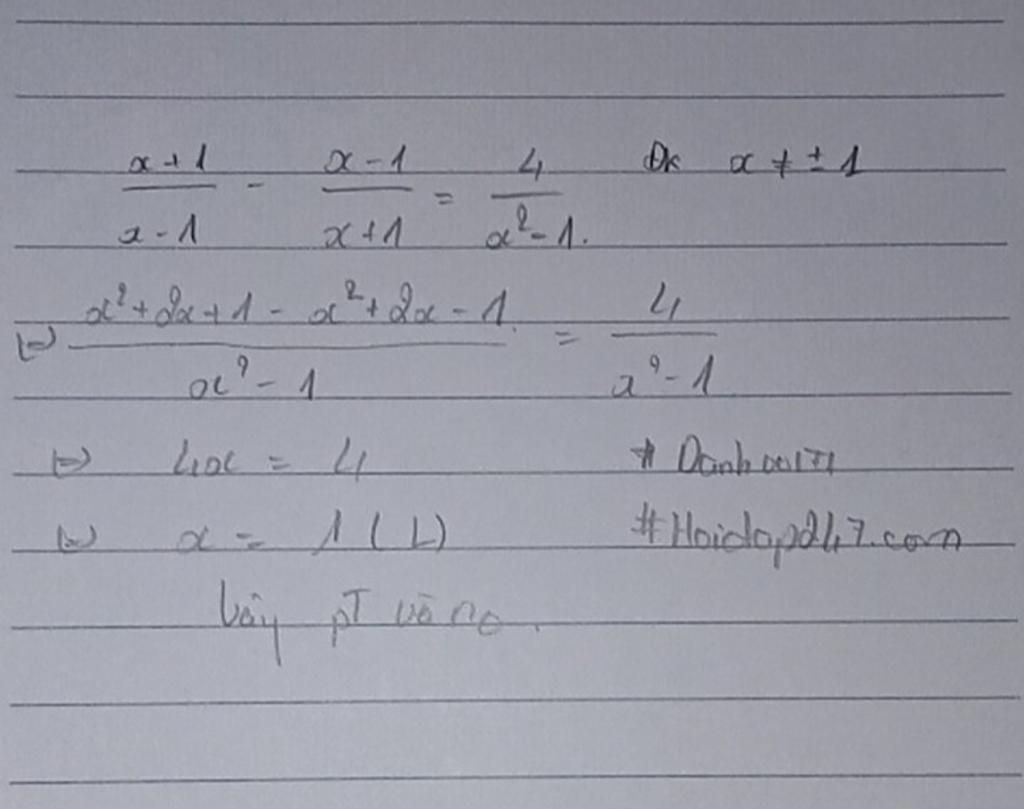 x+1/x-1 - x-1/x+1 = 4/x²-1. Đk x ≠ ±1
⇔ x²+2x+1-x²+2x-1/x²-1 = 4/x²-1
⇔ 4x = 4
⇔ x = 1 (L) #Hoidap247.com
Vậy pT vô no.